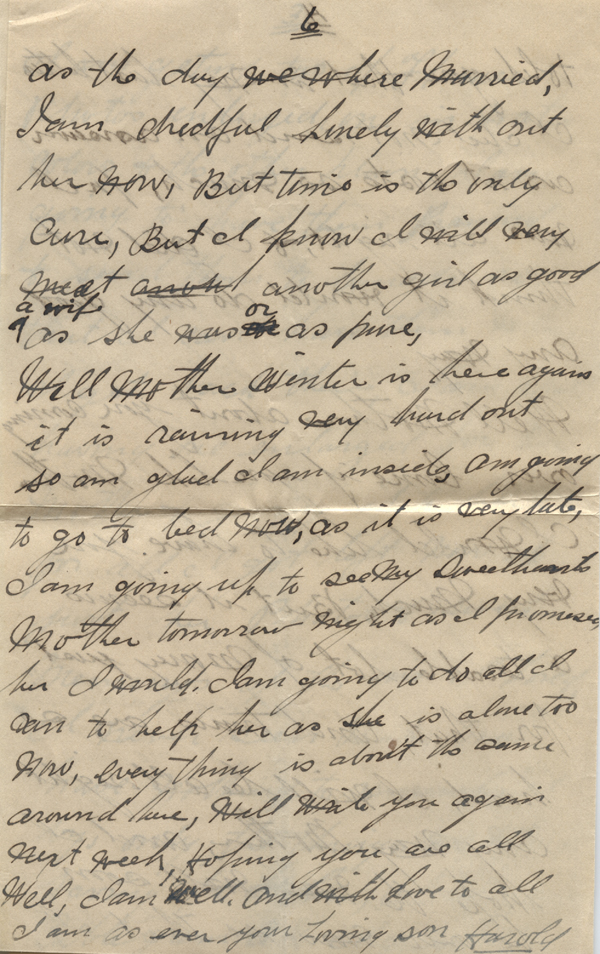 6
as the day we where Married,
I am dredful lonely with out
her now, But time is the only
Cure, But I know I will very
meat anoh another girl as good
a wife
as she was or as pure,
Well Mother Winter is here again
it is raining very hard out
so am glad I am inside, am going
to go to bed now, as it is very late,
I am going up to see My Sweethearts
Mother tomorrow night as I promised
her I would. I am going to do all I
can to help her as she is alone too
now, everything is about the same
around here, Will write you again
next week, Hoping you are all
Well, I am well. and with Love to all
I am as ever your Loving son Harold